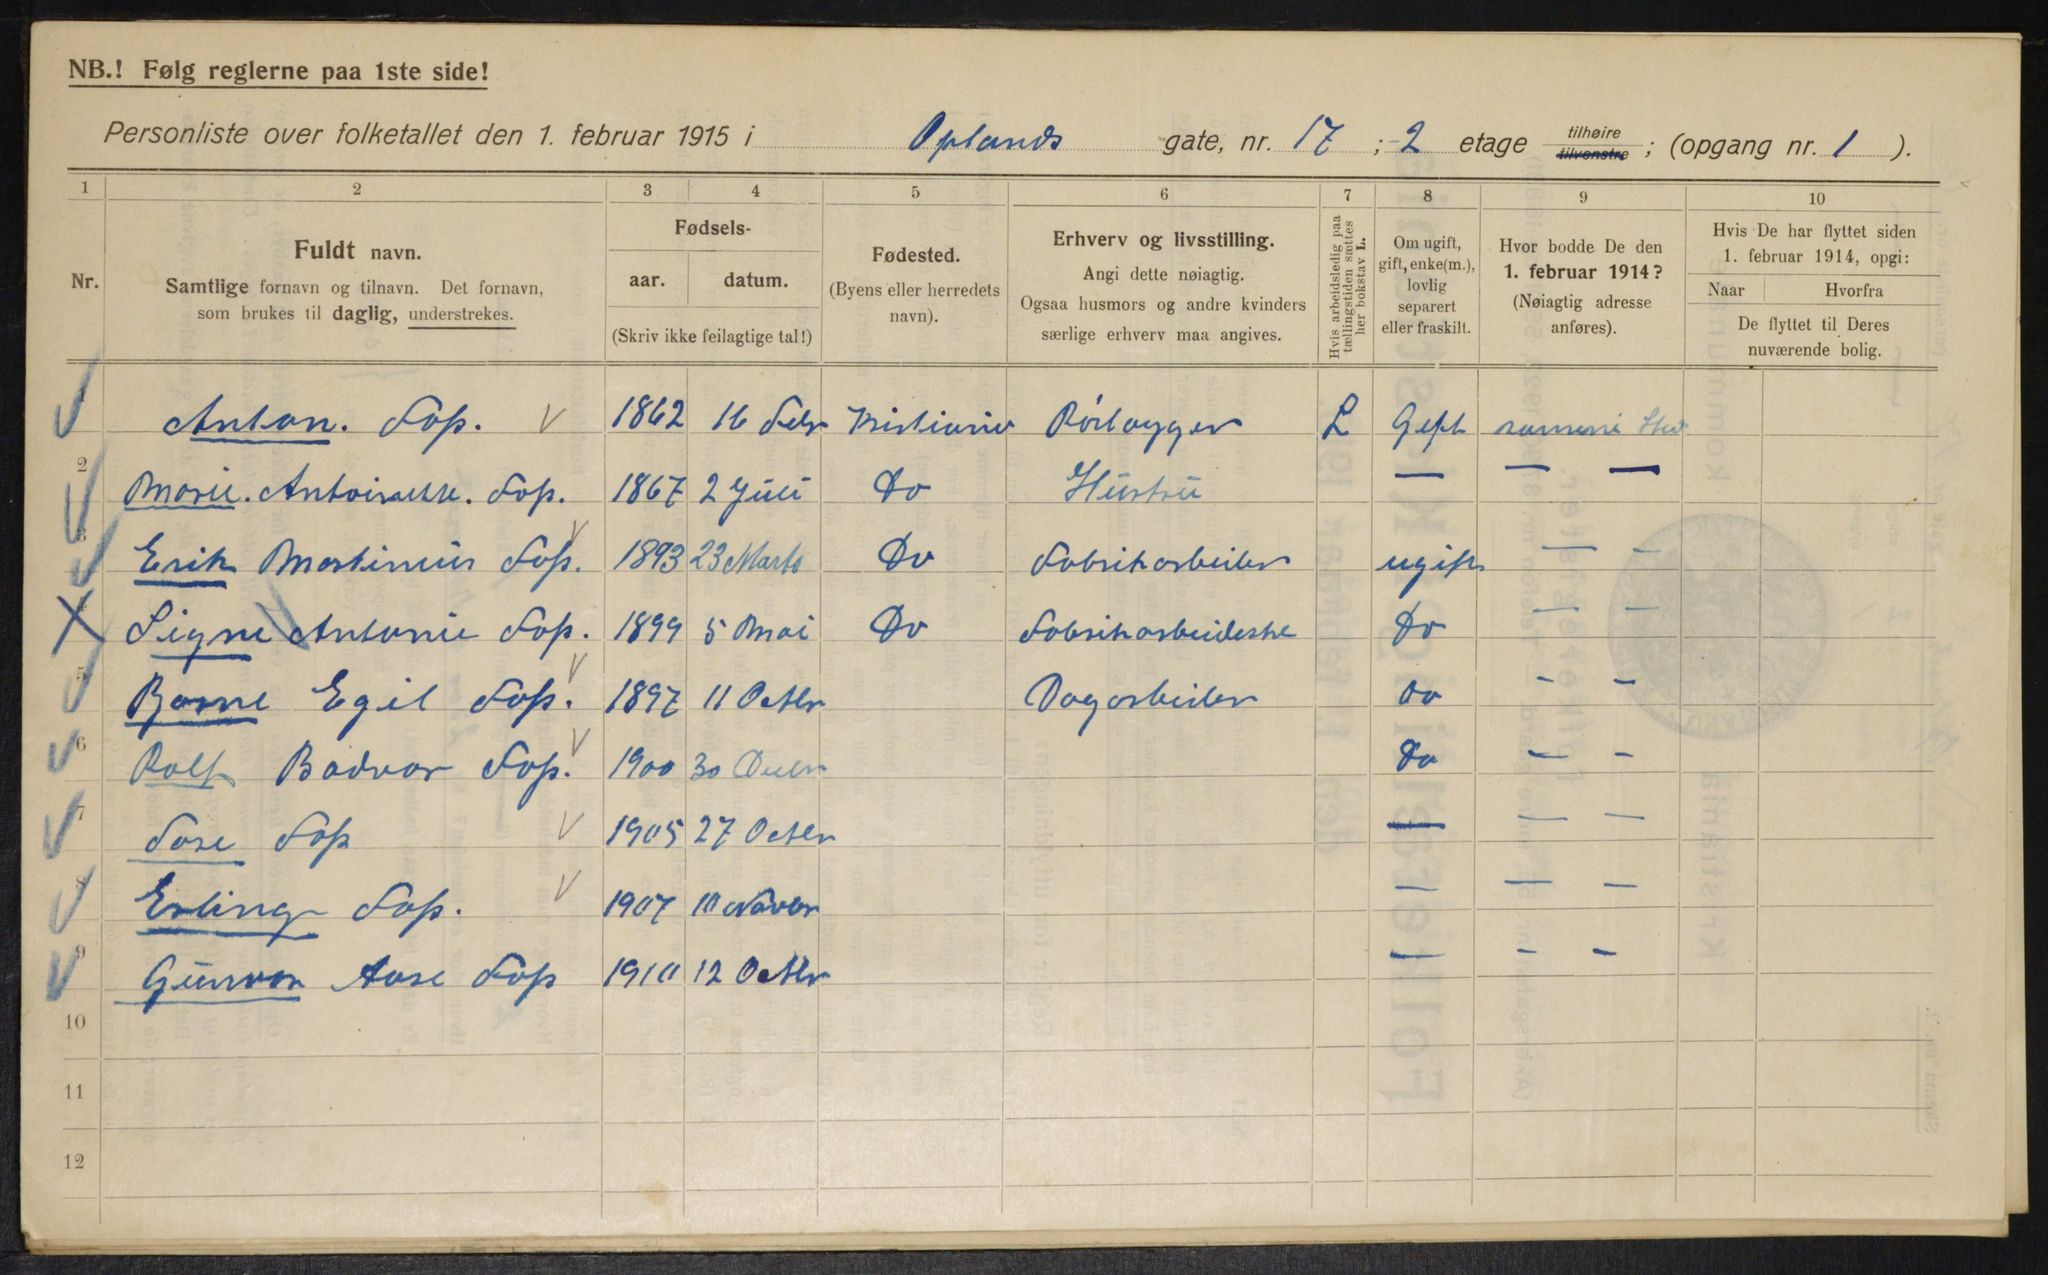 NB.! Følg reglerne paa 1ste side!
Personliste over folketallet den 1. februar 1915 i Oplands gate, nr. 17 ; -2 etage tilhøire tilvenstre ; (opgang nr. 1 ).
1 2 3 4 5 6 7 8 9 10
Nr.
Fuldt navn.
Samtlige fornavn og tilnavn. Det fornavn,
som brukes til daglig, understrekes.
Fødsels-
aar. datum.
(Skriv ikke feilagtige tal!)
Fødested.
(Byens eller herredets
navn).
Erhverv og livsstilling.
Angi dette nøiagtig.
Ogsaa husmors og andre kvinders
særlige erhverv maa angives.
Hvis arbeidsledig paa
tællingstiden sættes
her bokstav L.
Om ugift,
gift, enke(m.),
lovlig
separert
eller fraskilt.
Hvor bodde De den
1. februar 1914?
(Nøiagtig adresse
anføres).
Hvis De har flyttet siden
1. februar 1914, opgi:
Naar Hvorfra
De flyttet til Deres
nuværende bolig.
1 Anton. Foss. 1862 16 Febr Kristiania Rörlægger L Gift samme
2 Marie. Antoinette. Foss. 1867 2 Juli Do Hustru — — —
3 Erik Martinius Foss. 1893 23 Marts Do Fabrikarbeider ugift — —
4 Signe Antonie Foss. 1899 5 Mai Do Fabrikarbeiderske Do — —
5 Bjarne Egil Foss. 1897 11 Octbr Dagarbeider Do — —
6 Rolf Bodvar Foss. 1900 30 Decbr Do — —
7 Foss 1905 27 Octbr — — —
8 Erling Foss. 1907 10 Novbr — — —
9 Gunvor Aase Foss 1910 12 Octbr — — —
10
11
12